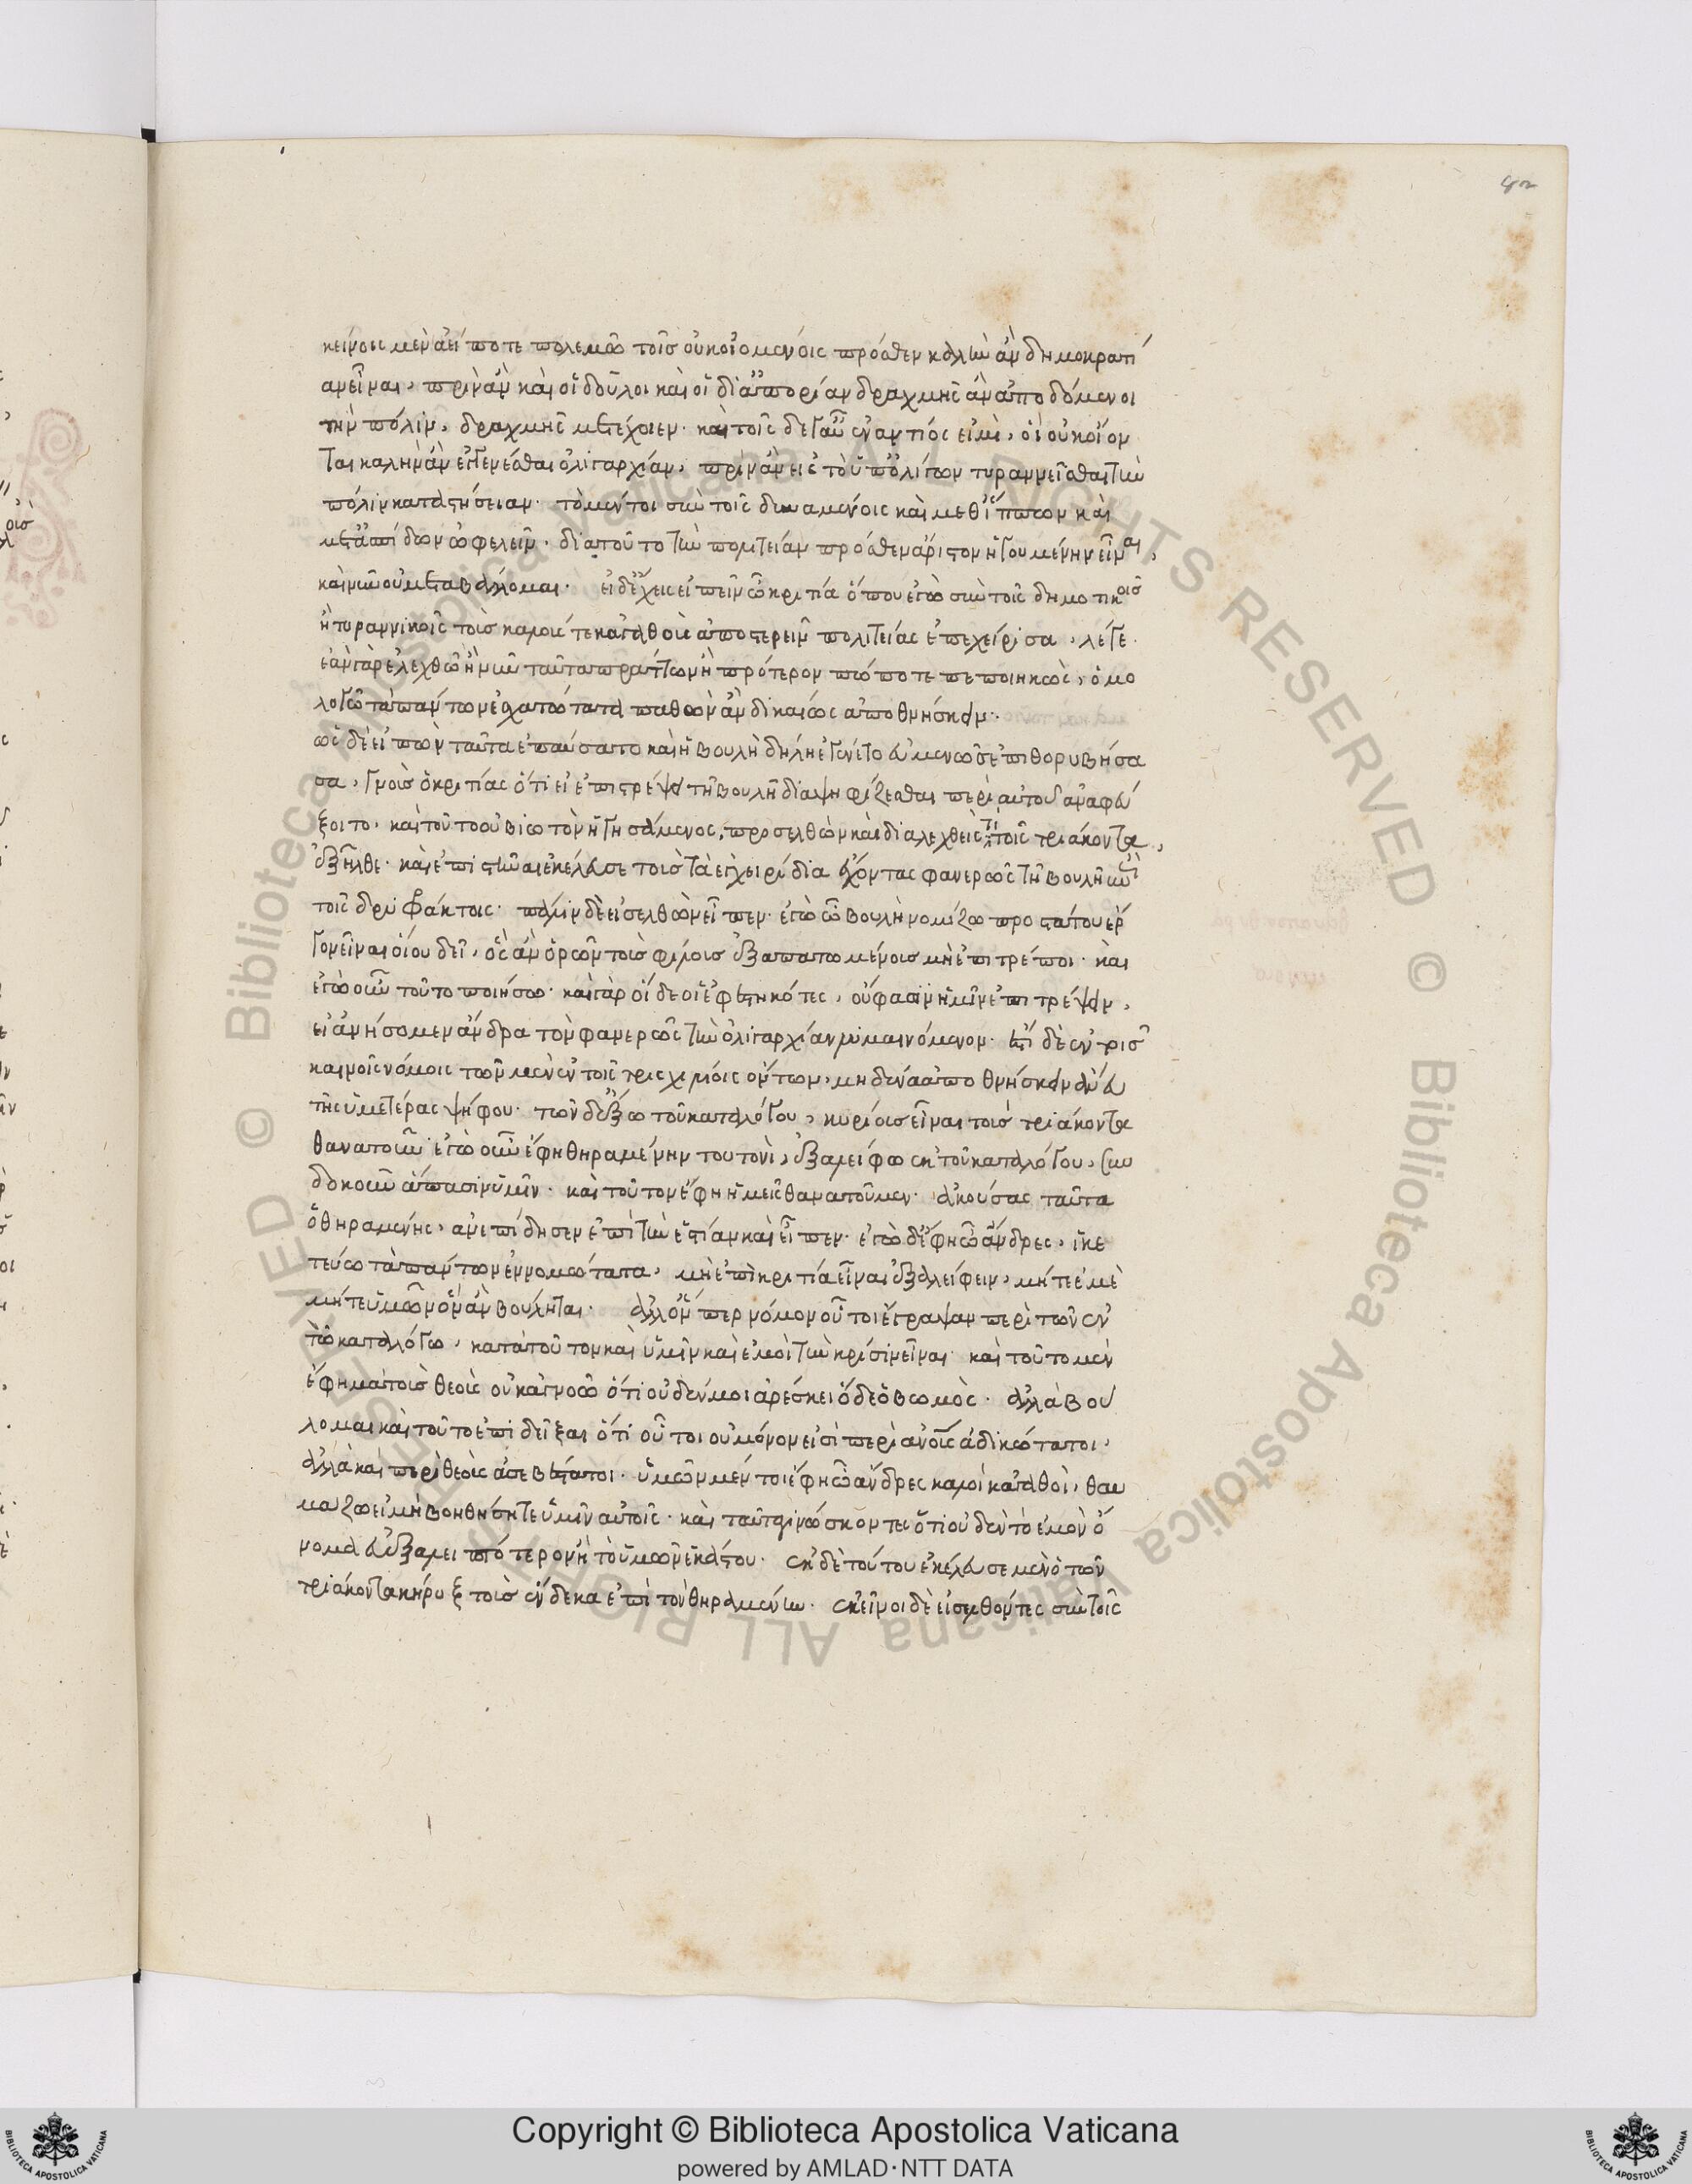 κείνοις μὲν ἀεί ποτε πολεμῶ τοῖς οὐκ οἰομένοις πρόσθεν καλὴν ἂν δημοκρατί
αν εἶναι, πρὶν ἂν καὶ οἱ δοῦλοι καὶ οἱ δι' ἀπορίαν δραχμῆς ἂν ἀποδόμενοι
τὴν πόλιν, δραχμῆς μετέχοιεν. καὶ τοῖς δέ γ' αὖ ἐναντίος εἰμὶ, οἳ οὐκ οἴον
ται καλὴν ἂν ἐγγενέσθαι ὀλιγαρχίαν, πρὶν ἂν εἰς τὸ ὑπ' ὀλίγων τυραννεῖσθαι τὴν
πόλιν καταστήσειαν. τὸ μέντοι σὺν τοῖς δυναμένοις καὶ μεθ' ἵππων καὶ
μετ' ἀσπίδων ὠφελεῖν. διὰ τοῦτο τὴν πολιτείαν πρόσθεν ἄριστον ἡγούμην εἶναι,
καὶ νῦν οὐ μεταβάλλομαι. εἰ δ' ἔχεις εἰπεῖν ὦ κριτία ὅπου ἐγὼ σὺν τοῖς δημοτικοῖς
ἢ τυραννικοῖς τοὺς καλούς τε κἀγαθοὺς ἀποστερεῖν πολιτείας ἐπεχείρησα, λέγε.
ἐὰν γὰρ ἐλεγχθῶ ἢ νῦν ταῦτα πράττων ἢ πρότερον πώποτε πεποιηκὼς, ὁμο
λογῶ τὰ πάντων ἐσχατώτατα παθὼν ἂν δικαίως ἀποθνήσκειν.
ὡς δὲ εἰπὼν ταῦτα ἐπαύσατο καὶ ἡ βουλὴ δήλη ἐγένετο εὐμενῶς ἐπιθορυβήσα
σα, γνοὺς ὁ κριτίας ὅτι εἰ ἐπιτρέψει τῇ βουλῇ διαψηφίζεσθαι περὶ αὐτοῦ ἀναφεύ
ξοιτο, καὶ τοῦτο οὐ βιωτὸν ἡγησάμενος, προσελθὼν καὶ διαλεχθείς τι τοῖς τριάκοντα,
ἐξῆλθε. καὶ ἐπιστῆναι ἐκέλευσε τοὺς τὰ ἐγχειρίδια ἔχοντας φανερῶς τῇ βουλῇ ἐπὶ
τοῖς δρυφάκτοις. πάλιν δὲ εἰσελθὼν εἶπεν. ἐγὼ ὦ βουλὴ νομίζω προστάτου ἔρ
γον εἶναι οἵου δεῖ, ὃς ἂν ὁρῶν τοὺς φίλους ἐξαπατωμένους μὴ ἐπιτρέποι. καὶ
ἐγὼ οὖν τοῦτο ποιήσω. καὶ γὰρ οἵδε οἱ ἐφεστηκότες, οὔ φασιν ἡμῖν ἐπιτρέψειν,
εἰ ἀνήσομεν ἄνδρα τὸν φανερῶς τὴν ὀλιγαρχίαν λυμαινόμενον. ἔτι δὲ ἐν τοῖς
καινοῖς νόμοις τῶν μὲν ἐν τοῖς τρισχιλίοις ὄντων, μηδένα ἀποθνήσκειν ἄνευ
τῆς ὑμετέρας ψήφου. τῶν δ' ἔξω τοῦ καταλόγου, κυρίους εἶναι τοὺς τριάκοντα
θανατοῦν. ἐγὼ οὖν ἔφη θηραμένην τουτονὶ, ἐξαλείφω ἐκ τοῦ καταλόγου, συν
δοκοῦν ἅπασιν ὑμῖν. καὶ τοῦτον ἔφη ἡμεῖς θανατοῦμεν. ἀκούσας ταῦτα
ὁ θηραμένης, ἀνεπήδησεν ἐπὶ τὴν ἑστίαν καὶ εἶπεν. ἐγὼ δ' ἔφη ὦ ἄνδρες, ἱκε
τεύω τὰ πάντων ἐννομώτατα, μὴ ἐπὶ κριτίᾳ εἶναι ἐξαλείφειν, μήτε ἐμὲ
μήτε ὑμῶν ὃν ἂν βούληται. ἀλλ' ὅνπερ νόμον οὗτοι ἔγραψαν περὶ τῶν ἐν
τῷ καταλόγῳ, κατὰ τοῦτον καὶ ὑμῖν καὶ ἐμοὶ τὴν κρίσιν εἶναι. καὶ τοῦτο μὲν
ἔφη μὰ τοὺς θεοὺς οὐκ ἀγνοῶ ὅτι οὐδέν μοι ἀρέσκει ὅδε ὁ βωμὸς. ἀλλὰ βού
λομαι καὶ τοῦτο ἐπιδεῖξαι ὅτι οὗτοι οὐ μόνον εἰσὶ περὶ ἀνους ἀδικώτατοι,
ἀλλὰ καὶ περὶ θεοὺς ἀσεβέστατοι. ὑμῶν μέν τοι ἔφη ὦ ἄνδρες καλοὶ κἀγαθοὶ, θαυ
μάζω εἰ μὴ βοηθήσητε ὑμῖν αὐτοῖς. καὶ ταῦτα γινώσκοντες ὅτι οὐδὲν τὸ ἐμὸν ὄ
νομα εὐεξαλειπτότερον ἢ τὸ ὑμῶν ἑκάστου. ἐκ δὲ τούτου ἐκέλευσε μὲν ὁ τῶν
τριάκοντα κήρυξ τοὺς ἕνδεκα ἐπὶ τὸν θηραμένην. ἐκεῖνοι δὲ εἰσελθόντες σὺν τοῖς